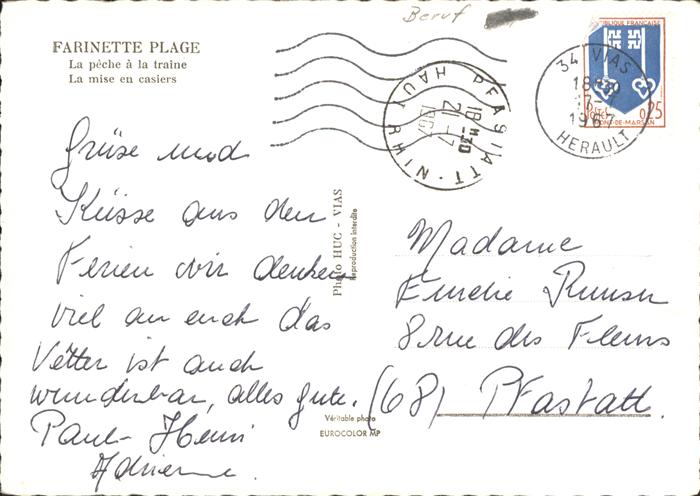 Beruf
FARINETTE PLAGE
La pêche à la traîne
La mise en casiers
RÉPUBLIQUE FRANÇAISE
POSTES 0,25
MONT-DE-MARSAN
34 VIAS
18H30
17-7
1967
HERAULT
PFASTATT
18H30
21-7
1967
HAUT RHIN
Grüse und
Küsse aus den
Ferien wir denken
viel an euch das
Vetter ist auch
wunderbar, alles gute.
Paul-Henri
Adrienne.
Photo HUC - VIAS
Reproduction interdite
Véritable photo
EUROCOLOR MP
Madame
Emelie
8 rue des Fleurs
(68) Pfastatt.